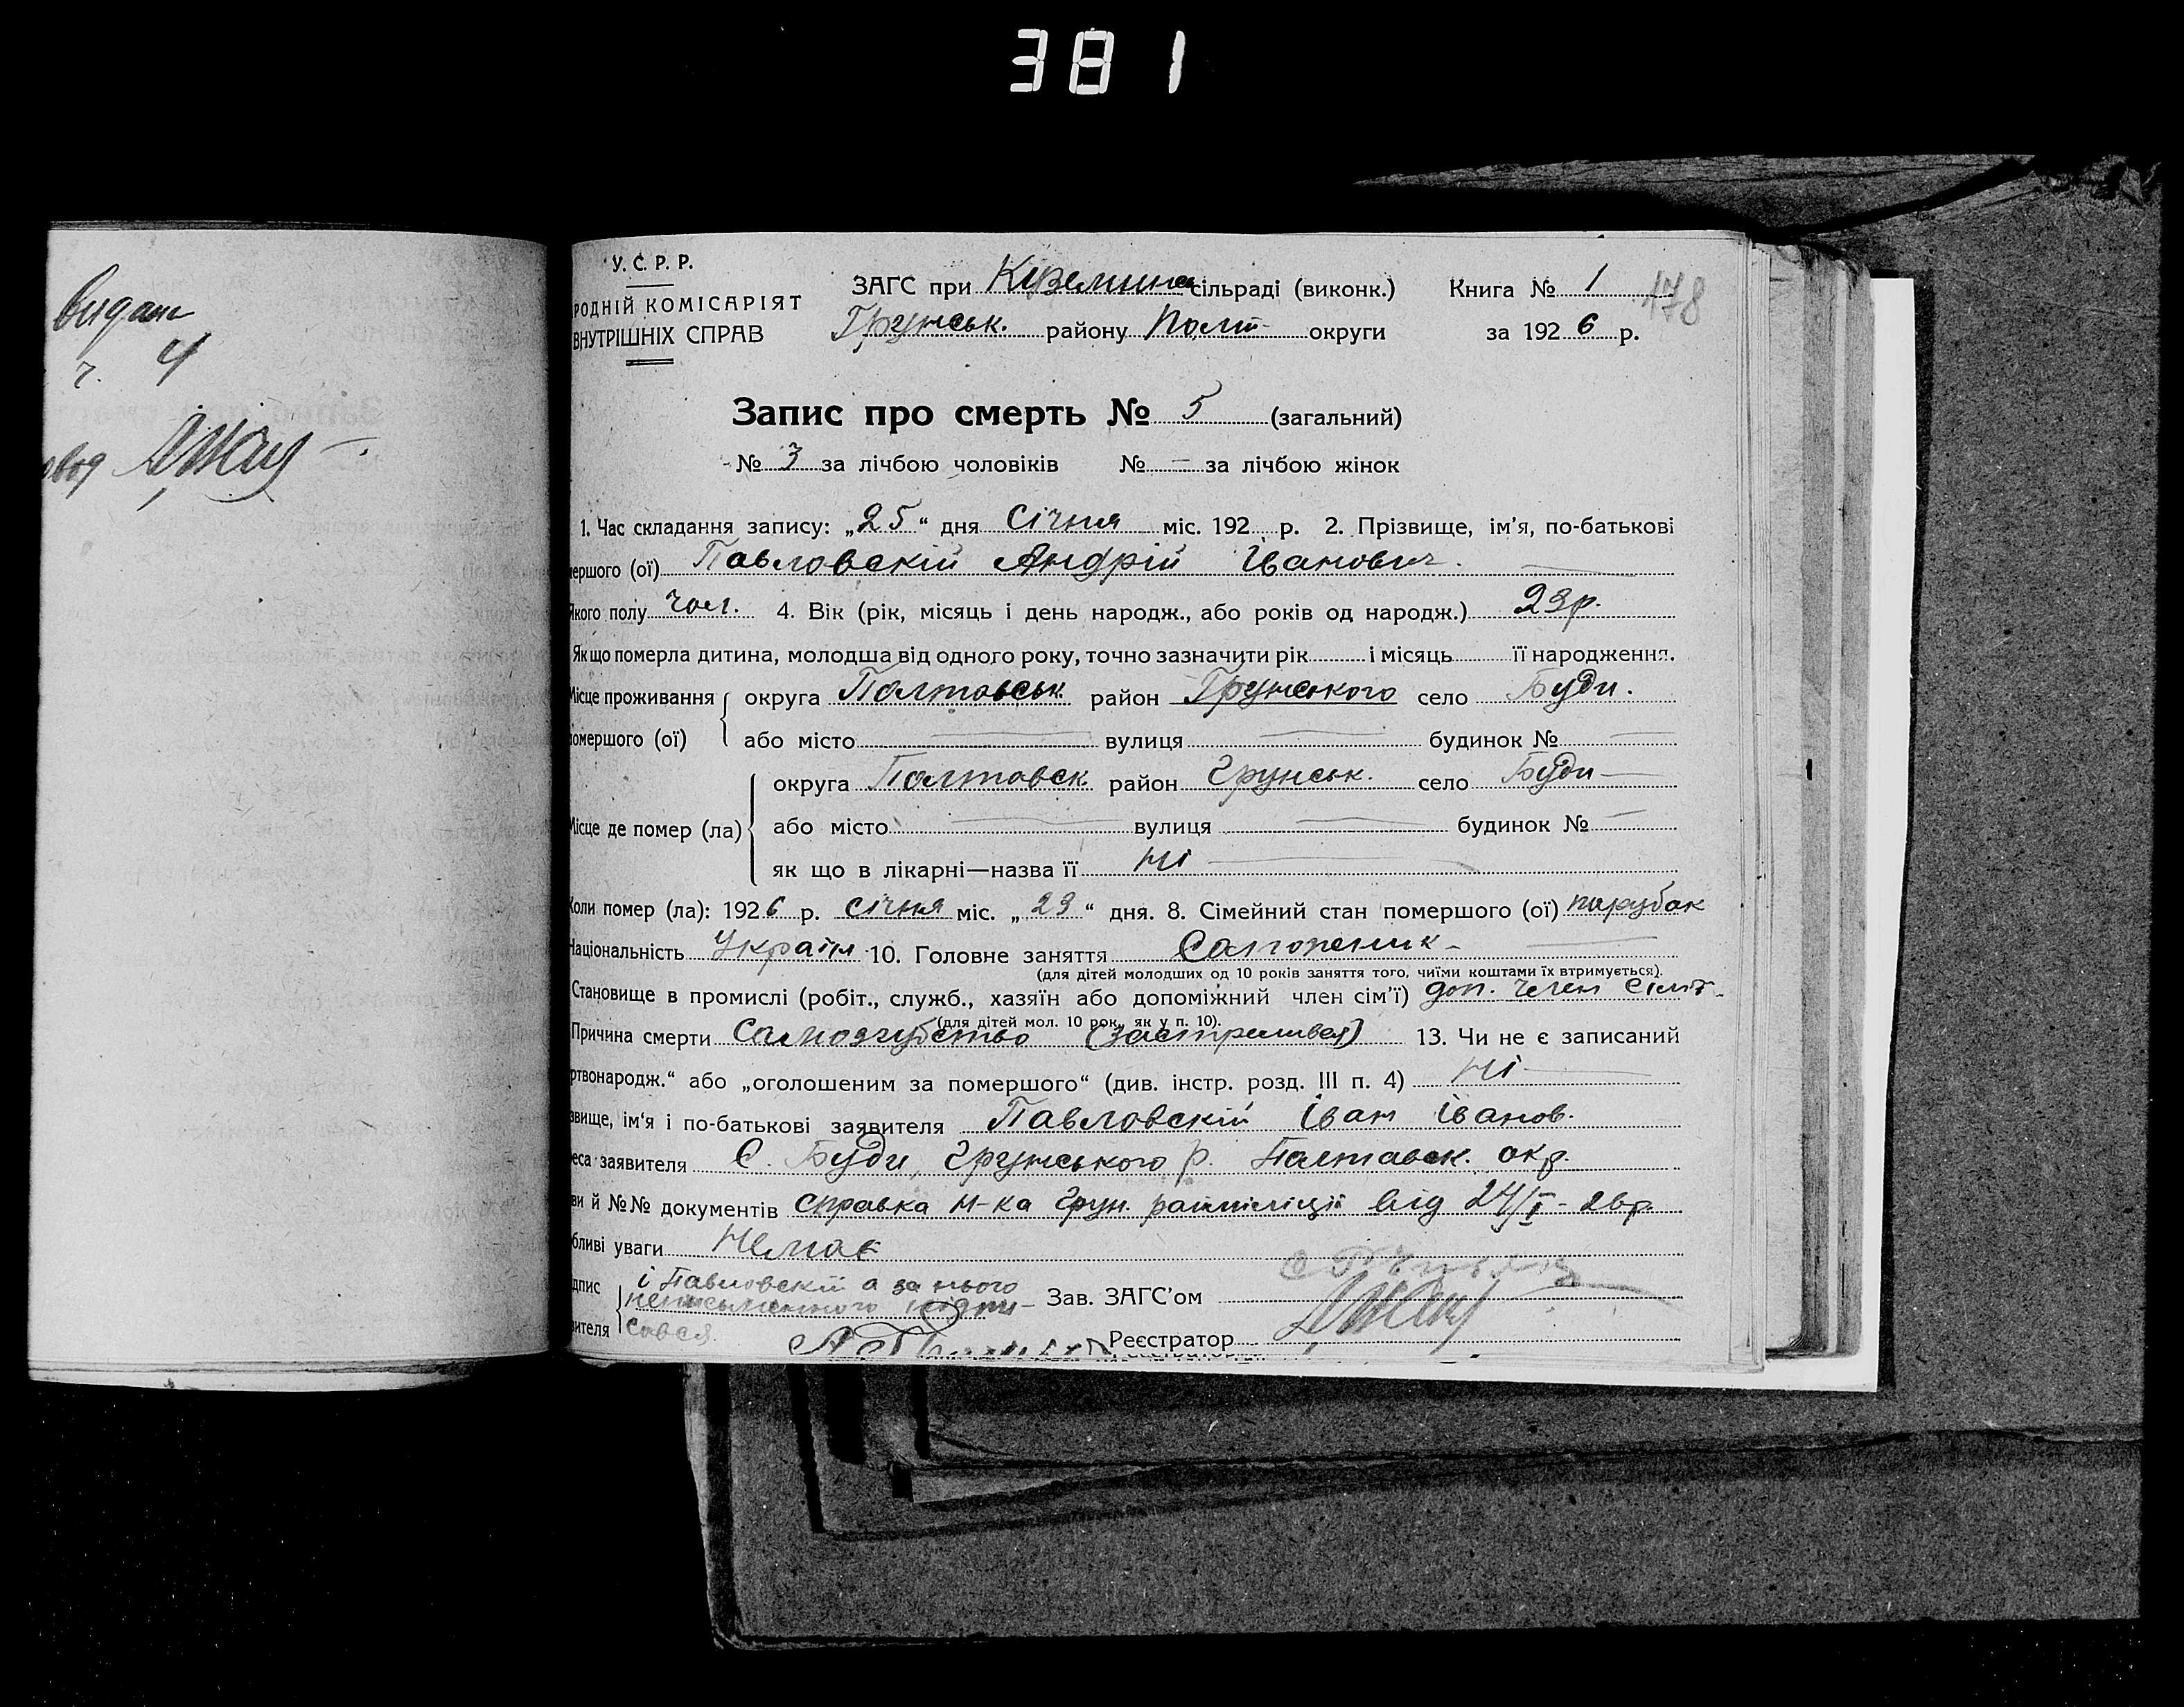 381
видано
ч. 4
У. С. Р. Р.
РОДНІЙ КОМІСАРІЯТ
ВНУТРІШНІХ СПРАВ
ЗАГС при сільраді (виконк.) Книга № 1 178
Грунськ. району Полт- округи за 1926 р.
Запис про смерть № 5 (загальний)
№ 3 за лічбою чоловіків № — за лічбою жінок
1. Час складання запису: „25“ дня Січня міс. 192 р. 2. Прізвище, ім’я, по-батькові
мершого (ої) Павловскій Андрій Іванович.
Якого полу чол. 4. Вік (рік, місяць і день народж., або років од народж.) 23р.
Якщо померла дитина, молодша від одного року, точно зазначити рік і місяць її народження.
Місце проживання округа Полтавськ район Грунського село Буди.
помершого (ої) або місто вулиця будинок №
округа Полтавск район Грунськ. село Буди
Місце де помер (ла) або місто вулиця будинок №
як що в лікарні—назва її Ні
Коли помер (ла): 1926 р. січня міс. „23“ дня. 8. Сімейний стан помершого (ої) парубак
Національність Україн 10. Головне заняття
(для дітей молодших од 10 років заняття того, чиїми коштами їх втримується).
Становище в промислі (робіт., служб., хазяїн або допоміжний член сім’ї) доп. член сім’ї
(для дітей мол. 10 рок., як у п. 10).
Причина смерти Самозгубство (застрелився) 13. Чи не є записаний
ртвонародж.“ або „оголошеним за помершого“ (див. інстр. розд. III п. 4) Ні
звище, ім‘я і по-батькові заявителя Павловскій Іван Іванов.
еса заявителя С. Буди, Грунського р. Полтавск. окр.
ви й №№ документів справка Н-ка Грун. райміліції від 24/I - 26р.
бливі уваги Немає
дпис і Павловскій а за нього
неписьменного підпи- Зав. ЗАГС’ом
вителя сався
Реєстратор